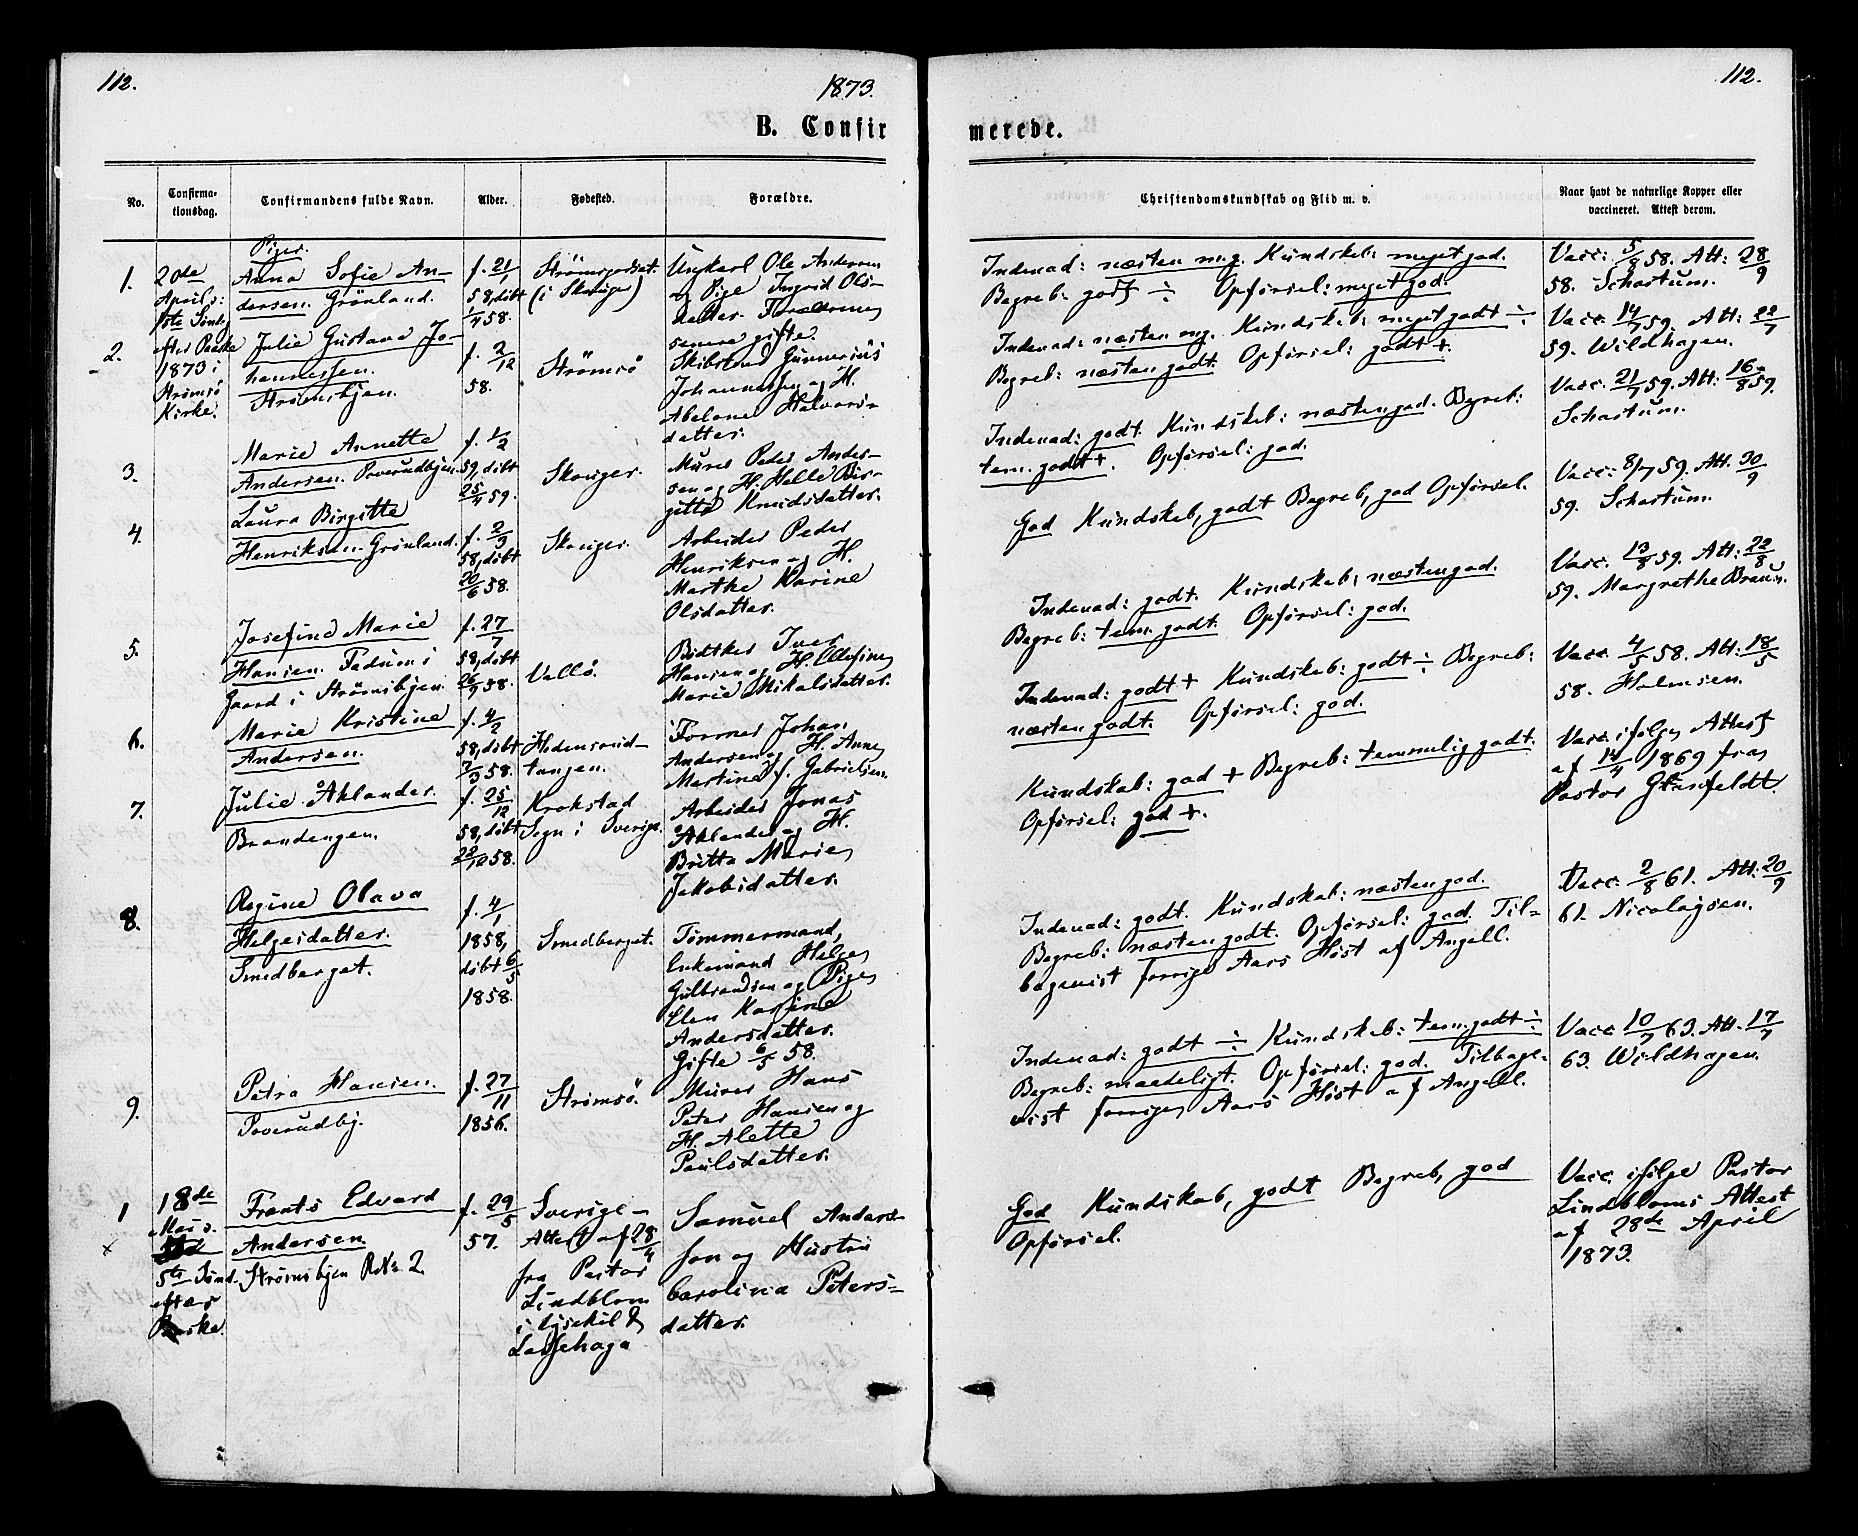 112.
1873.
112.
B. Confir
merede.
No.
Confirma-
tionsdag.
Confirmandens fulde Navn.
Alder.
Fødested.
Forældre.
Christendomskundskab og Flid m. v.
Naar havt de naturlige Kopper eller
vaccineret. Attest derom.
Piger.
1.
20de
Aprils:
1ste Sønd.
efter Paaske
1873 i
Strømsö
Kirke.
Anna Sofie An-
dersen. Grönland.
f. 21/1
58, döbt
1/4 58.
Strömsgodset.
(i Skouger)
Ungkarl Ole Andersen
og Pige Ingrid Ols-
datter. Forældrene
senere gifte.
Indenad: næsten mg. Kundskab: meget god.
Begreb: godt ÷ Opførsel: meget god.
Vacc: 5/8 58. Att: 28/9
58. Schartum.
2.
Julie Gustava Jo-
hannessen.
Strømsbjen.
f. 2/12
58.
Strömsö
Skibstmd Gunnerius
Johannessen og H.
Abelone Halvors-
datter.
Indenad: næsten mg. Kundskab: meget godt ÷
Begreb: næsten godt. Opførsel: godt +.
Vacc. 14/7 59. Att: 22/7
59. Wildhagen.
3.
Marie Annette
Andersen. Poverudbjen.
f. 1/2
59, döbt
25/4 59.
Skouger.
Murer Peder Ander-
sen og H. Helle Bir-
gitte Knudsdatter.
Indenad: godt. Kundskab: næsten god. Begreb:
tem. godt +. Opførsel: god.
Vacc: 21/7 59. Att: 16/8 59.
Schartum.
4.
Laura Birgitte
Henriksen. Grönland.
f. 2/3
58, döbt
20/6 58.
Skouger.
Arbeider Peder
Henriksen og H.
Marthe Karine
Olsdatter.
God Kundskab, godt Begreb, god Opførsel.
Vacc: 8/7 59. Att. 30/9
59. Schartum.
5.
Josefine Marie
Hansen. Fadum i
Gaard i Strømsbjen.
f. 27/7
58, döbt
26/9 58.
Vallö.
Bödtker Iver
Hansen og H. Ollefine
Marie Mikalsdatter.
Indenad: godt. Kundskab: næsten god.
Begreb: tem. godt. Opførsel: god.
Vacc. 13/8 59. Att: 22/8
59. Margrethe Bruun.
6.
Marie Kristine
Andersen.
f. 4/2
58, döbt
7/3 58.
Hedensrud-
tangen.
Former Johan
Andersen og H. Anne
Martine f. Gabrielsen.
Indenad: godt + Kundskab: godt ÷ Begreb:
næsten godt. Opførsel: god.
Vacc 4/5 58. Att: 18/5
58. Holmsen.
7.
Julie Åklander.
Brandengen.
f. 25/12
58, döbt
58.
Krokstad
Sogn i Sverige.
Arbeider Jonas
Åklander og H.
Britta Marie
Jakobsdatter.
Kundskab: god + Begreb: temmelig godt.
Opførsel: god +.
Vacc. ifølge Attest
af 14/4 1869 fra
Pastor
8.
Regine Olava
Helgesdatter.
Smedberget.
f. 4/1
1858,
döbt 6/5
1858.
Smedberget.
Tömmermand,
Enkemand Helge
Gulbrandsen og Pige
Elen Karine
Andersdatter.
Gifte 6/5 58.
Indenad: godt. Kundskab: næsten god.
Begreb: næsten godt. Opførsel: god. Til-
bagevist forrige Aars Höst af Angell.
Vacc. 2/8 61. Att: 20/9
61. Nicolaysen.
9.
Petra Hansen.
Poverudbj.
f. 27/11
1856.
Strømsö.
Murer Hans
Peter Hansen og
H. Alette
Paulsdatter.
Indenad: godt ÷ Kundskab: tem. godt ÷
Begreb: maadeligt. Opførsel: god. Tilbage-
vist forrige Aars Höst af Angell.
Vacc 10/7 63. Att. 17/7
63. Wildhagen.
1
x
18de
Mai s.
5te Sønd.
efter
Paaske.
Frants Edvard
Andersen.
Strømsbjen R. No 2
f. 29/5
57.
Sverige-
Attest af 28/4
fra Pastor
Lindblom
i Lysekil &
Samuel Anders-
son og Hustru
Carolina Peters-
datter.
God Kundskab, godt Begreb, god
Opførsel.
Vacc. ifølge Pastor
Lindbloms Attest
af 28de April
1873.